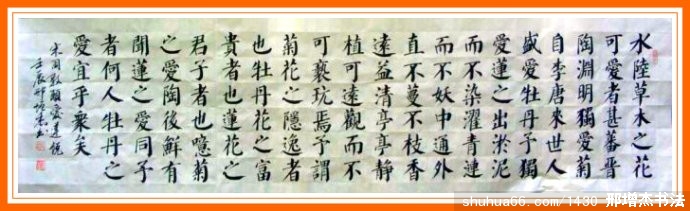 水陸草木之花
可愛者甚蕃晋
陶淵明獨愛菊
自李唐来世人
盛愛牡丹予獨
愛蓮之出淤泥
而不染濯青連
而不妖中通外
直不蔓不枝香
遠益清亭亭静
植可遠觀而不
可褻玩焉予謂
菊花之隱逸者
也牡丹花之富
貴者也蓮花之
君子者也噫菊
之愛陶後鮮有
聞蓮之愛同予
者何人牡丹之
愛宜乎衆矣
宋周敦頤愛蓮說
壬辰邢增杰书
shuhua66.com/1430 邢增杰书法